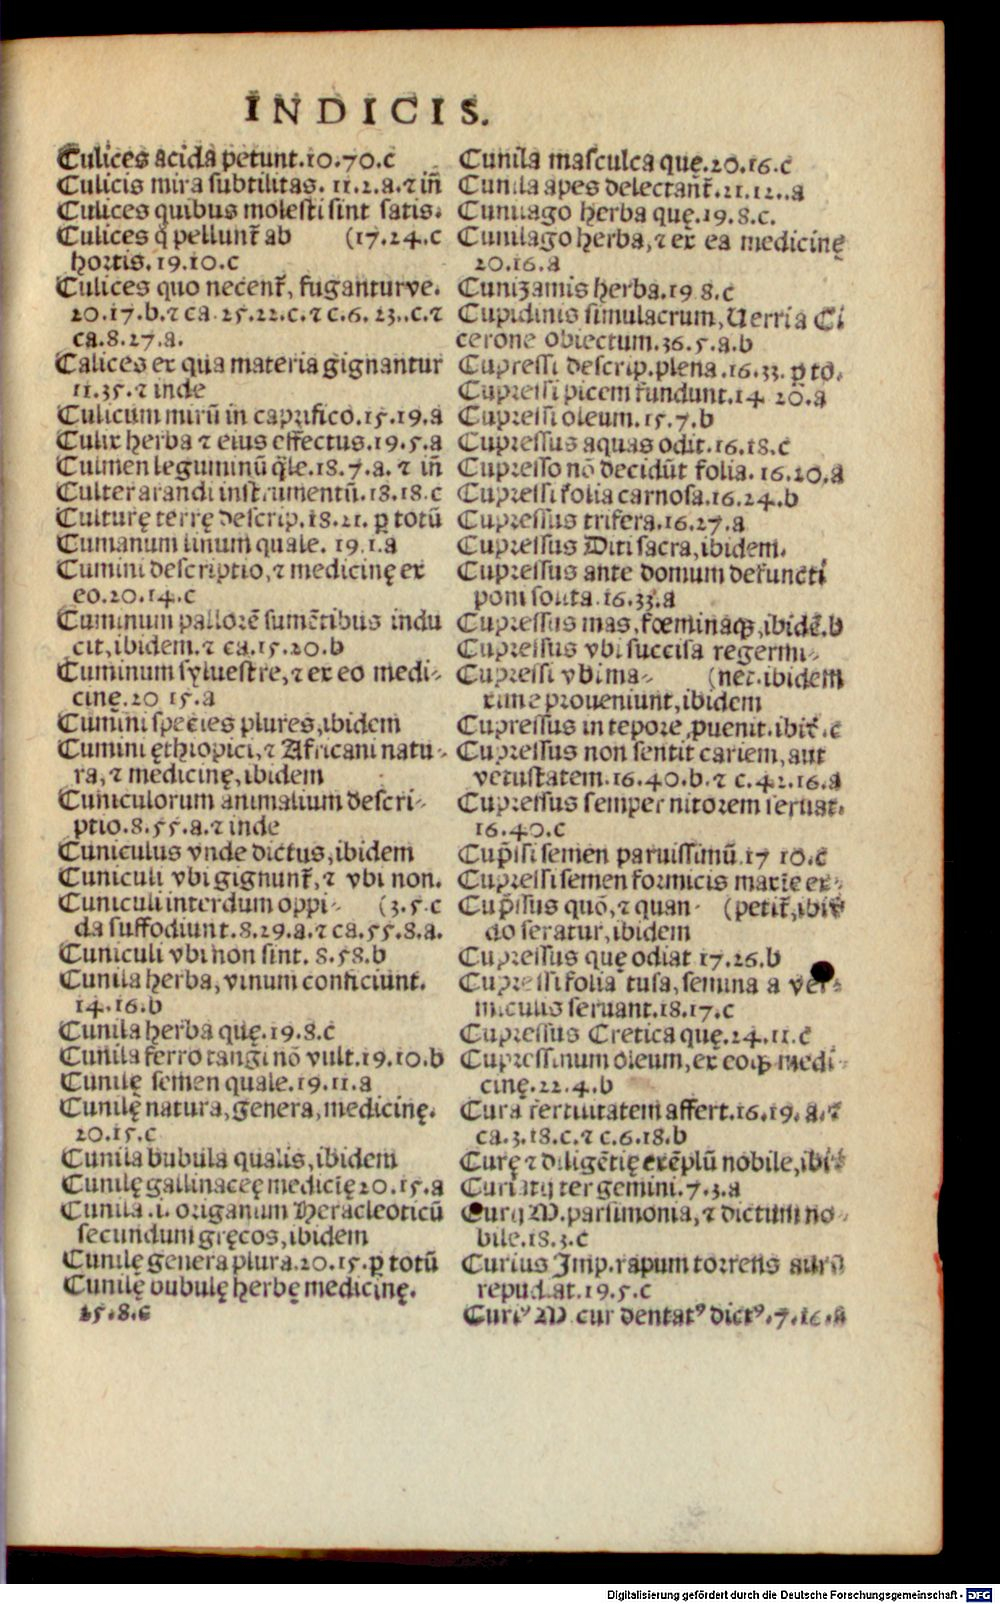 INDICIS.
Culices acida petunt.10.70.c
Culicis mira subtilitas. 11.2.a.⁊ iñ
Culices quibus molesti sint satis.
Culices q̃ pellunt̃ ab (17.24.c
hortis.19.10.c
Culices quo necent̃, fugantur ve.
20.17.b.⁊ ca.25.22.c.⁊ c.6. 23..c.⁊
ca.8.27.a.
Calices ex qua materia gignantur
11.35.⁊ inde
Culicum mirũ in caprifico.15.19.a
Culix herba ⁊ eius effectus.19.5.a
Culmen leguminũ q̃le.18.7.a. ⁊ iñ
Culter arandi instrumentũ.18.18.c
Culturę terrę descrip.18.21. ꝑ totũ
Cumanum linum quale. 19.1.a
Cumini descriptio,⁊ medicinę ex
eo.20.14.c
Cuminum pallorẽ sumẽtibus indu
cit,ibidem.⁊ ca.15.20.b
Cuminum syluestre,⁊ ex eo medi-
cinę.20 15.a
Cumini species plures,ibidem
Cumini ęthiopici,⁊ Africani natu-
ra,⁊ medicinę,ibidem
Cuniculorum animalium descri-
ptio.8.55.a.⁊ inde
Cuniculus vnde dictus,ibidem
Cuniculi vbi gignunt̃,⁊ vbi non.
Cuniculi interdum oppi- (3.5.c
da suffodiunt.8.29.a.⁊ ca.55.8.a.
Cuniculi vbi non sint. 8.58.b
Cunila herba, vinum conficiunt.
14.16.b
Cunila herba quę.19.8.c
Cunila ferro tangi nõ vult.19.10.b
Cunilę semen quale.19.11.a
Cunilę natura,genera,medicinę.
20.15.c
Cunila bubula qualis,ibidem
Cunilę gallinaceę medicię20.15.a
Cunila .i. origanum Heracleoticũ
secundum gręcos,ibidem
Cunilę genera plura.20.15.ꝑ totũ
Cunilę bubulę herbę medicinę.
25.8.c
Cunila masculca quę.20.16.c
Cunila apes delectant̃.21.12..a
Cunilago herba quę.19.8.c.
Cunilago herba,⁊ ex ea medicinę
20.16.a
Cunizamis herba.19 8.c
Cupidinis simulacrum,Uerri a Ci
cerone obiectum.36.5.a.b
Cupressi descrip.plena.16.33. ꝑ to.
Cupressi picem fundunt.14 20.a
Cupressi oleum.15.7.b
Cupressus aquas odit.16.18.c
Cupresso nõ decidũt folia. 16.20.a
Cupressi folia carnosa.16.24.b
Cupressus trifera.16.27.a
Cupressus Diti sacra,ibidem.
Cupressus ante domum defuncti
poni solita.16.33.a
Cupressus mas,fœminaqꝫ,ibidẽ.b
Cupressus vbi succisa regermi-
Cupressi vbi ma- (net.ibidem
xime proueniunt,ibidem
Cupressus in tepore ,puenit.ibit̃.c
Cupressus non sentit cariem,aut
vetustatem.16.40.b.⁊ c.42.16.a
Cupressus semper nitorem seruat.
16.40.c
Cup̃ssi semen paruissimũ.17 10.c
Cupressi semen formicis maxĩe ex-
Cup̃ssus quõ,⁊ quan- (petit̃,ibi
do seratur,ibidem
Cupressus quę odiat 17.26.b
Cupressi folia tusa,semina a ver-
miculis seruant.18.17.c
Cupressus Cretica quę.24.11.c
Cupressinum oleum,ex eoqꝫ medi-
cinę.22.4.b
Cura fertilitatem affert.16.19. a.⁊
ca.3.18.c.⁊ c.6.18.b
Curę ⁊ diligẽtię exẽplũ nobile,ibi
Curiatij tergemini.7.3.a
Curij M.parsimonia,⁊ dictum no-
bile.18.3.c
Curius Imp.rapum torrens aurũ
repudiat.19.5.c
Curiꝰ M cur dentatꝰ dictꝰ.7.16.a
Digitalisierung gefördert durch die Deutsche Forschungsgemeinschaft - DFG